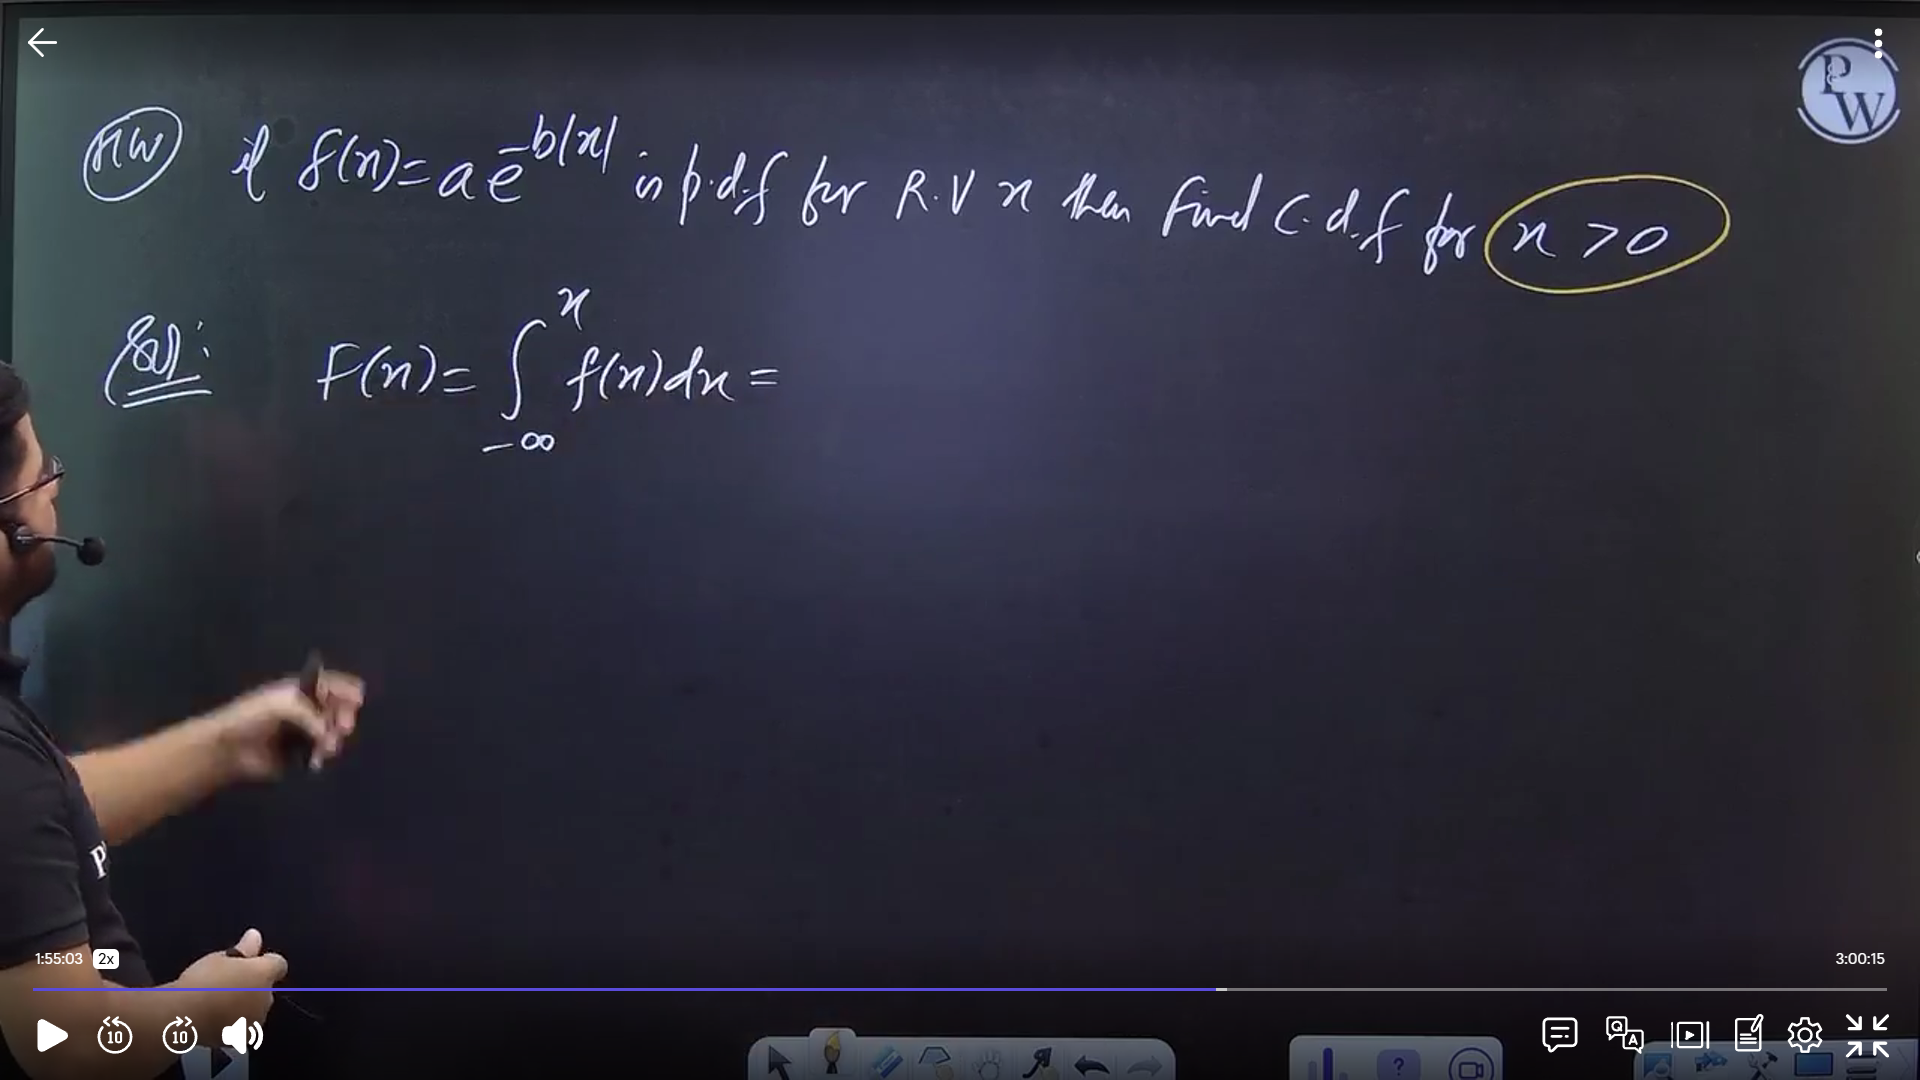 PW
HW if f(x) = a e^-b|x| is p.d.f for R.V x then find C.d.f for x > 0
Sol: F(x) = ∫_-∞^x f(x) dx =
P
1:55:03 2x 3:00:15
10 10 Q A
?